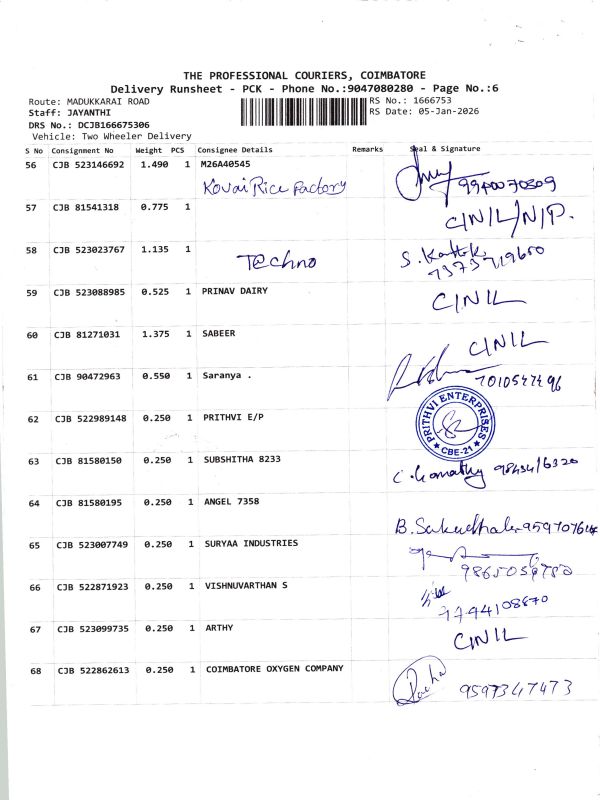 THE PROFESSIONAL COURIERS, COIMBATORE
Delivery Runsheet - PCK - Phone No.:9047080280 - Page No.:6
Route: MADUKKARAI ROAD RS No.: 1666753
Staff: JAYANTHI RS Date: 05-Jan-2026
DRS No.: DCJB166675306
Vehicle: Two Wheeler Delivery
S No Consignment No Weight PCS Consignee Details Remarks Seal & Signature
56 CJB 523146692 1.490 1 M26A40545
Kovai Rice Factory 9940070809
57 CJB 81541318 0.775 1
C/N/L/N/P.
58 CJB 523023767 1.135 1
Techno S. Karthik
7373719600
59 CJB 523088985 0.525 1 PRINAV DAIRY
C/N/L
60 CJB 81271031 1.375 1 SABEER
C/N/L
61 CJB 90472963 0.550 1 Saranya .
7010547496
62 CJB 522989148 0.250 1 PRITHVI E/P
PRITHVI ENTERPRISES
CBE-21
63 CJB 81580150 0.250 1 SUBSHITHA 8233
C. Gomathy
64 CJB 81580195 0.250 1 ANGEL 7358
B.
65 CJB 523007749 0.250 1 SURYAA INDUSTRIES
66 CJB 522871923 0.250 1 VISHNUVARTHAN S
9794108870
67 CJB 523099735 0.250 1 ARTHY
C/N/L
68 CJB 522862613 0.250 1 COIMBATORE OXYGEN COMPANY
Radha 9597347473